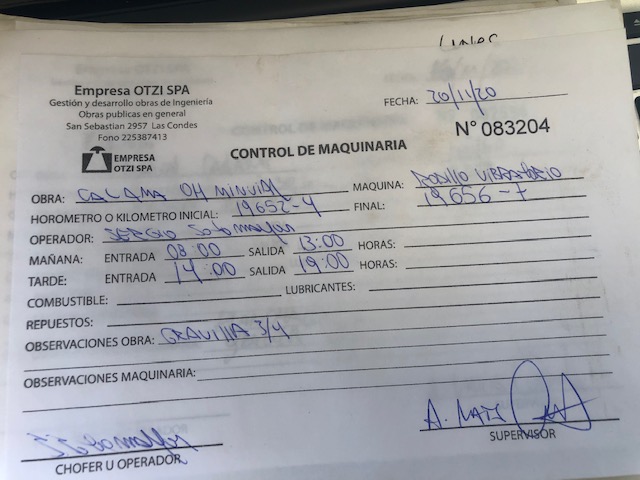 Empresa OTZI SPA
Gestión y desarrollo obras de Ingeniería
Obras publicas en general
San Sebastian 2957 Las Condes
Fono 225387413
EMPRESA
OTZI SPA
FECHA: 20/11/20
CONTROL DE MAQUINARIA
N° 083204
OBRA: CALAMA MAQUINA: RODILLO VIBRATORIO
HOROMETRO O KILOMETRO INICIAL: 19652-4 FINAL: 19656-7
OPERADOR: SERGIO
MAÑANA: ENTRADA 08:00 SALIDA 13:00 HORAS:
TARDE: ENTRADA 14:00 SALIDA 19:00 HORAS:
COMBUSTIBLE: LUBRICANTES:
REPUESTOS:
OBSERVACIONES OBRA: GRAVILLA 3/4
OBSERVACIONES MAQUINARIA:
CHOFER U OPERADOR
SUPERVISOR